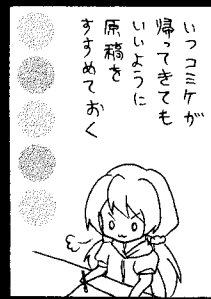 いつコミケが
帰ってきても
いいように
原稿を
すすめておく